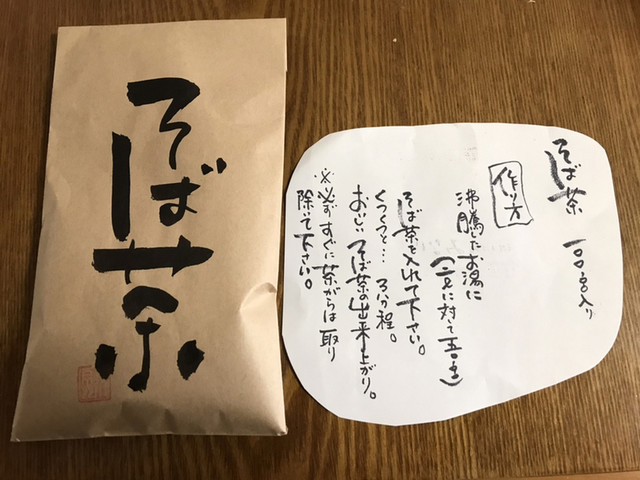 そば茶
そば茶 一〇〇g入り
作り方
沸騰したお湯に
(一ℓに対して五〇g)
そば茶を入れて下さい。
くつくつと… 3分程。
おいしいそば茶の出来上がり。
※必ずすぐに茶がらは取り
除いて下さい。